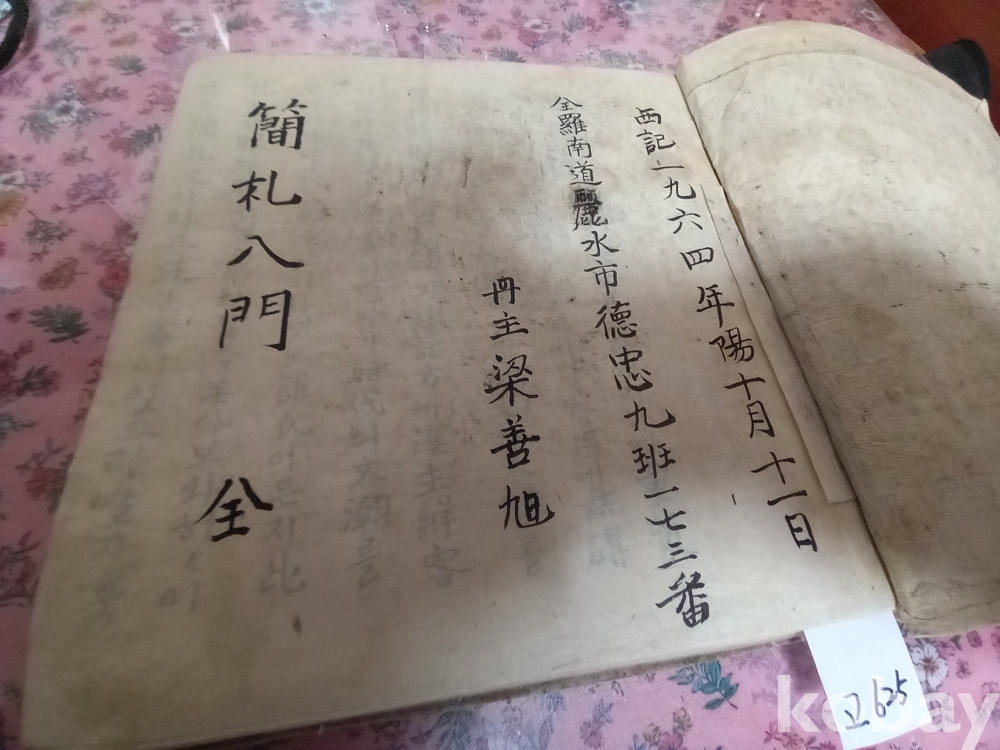 西記一九六四年陽十月十一日
全羅南道麗水市德忠九班一七三番
冊主梁善旭
簡札八門 全
고 625
kobay